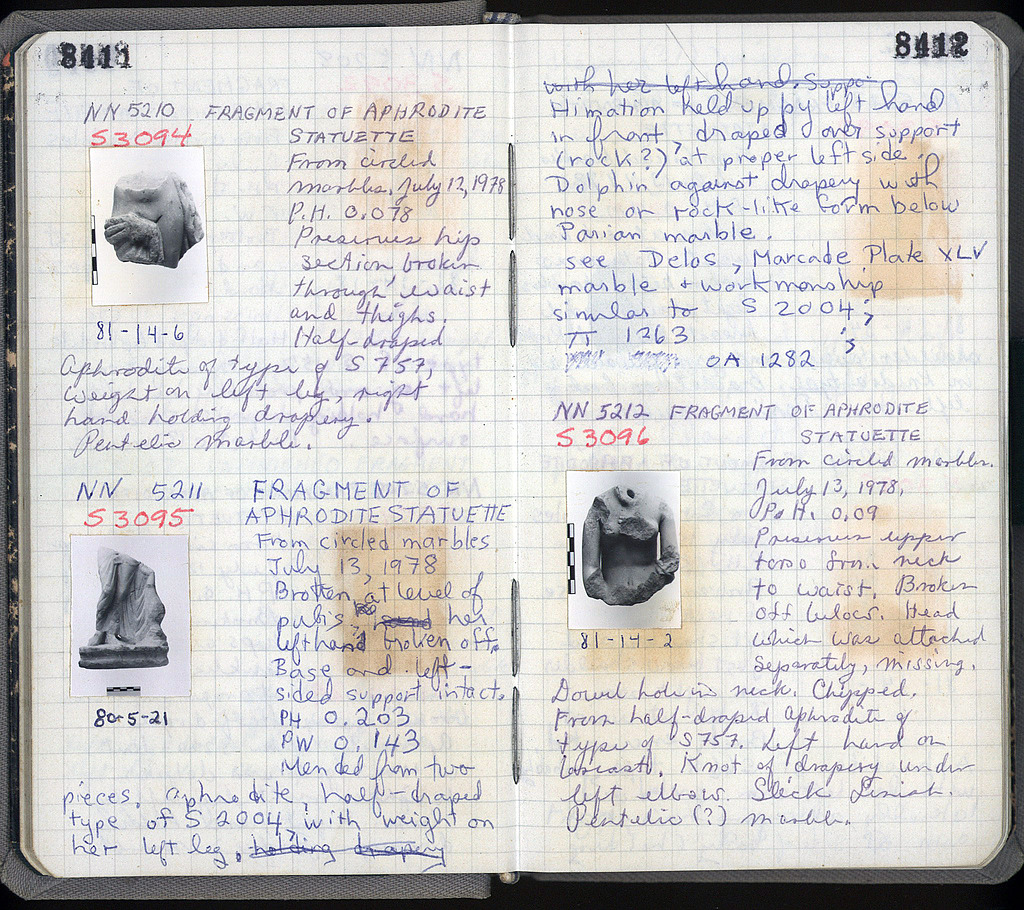 8411
NN 5210 FRAGMENT OF APHRODITE
S 3094 STATUETTE
From circled
marbles, July 12, 1978
P.H. 0.078
Preserves hip
section, broken
through waist
and thighs.
81-14-6
Half-draped
Aphrodite of type of S 757,
weight on left leg, right
hand holding drapery.
Pentelic marble.
NN 5211 FRAGMENT OF
S 3095 APHRODITE STATUETTE
From circled marbles
July 13, 1978
Broken at level of
pubis, her
left hand broken off.
Base and left-
sided support intact.
80-5-21
PH 0.203
PW 0.143
Mended from two
pieces. aphrodite, half-draped
type of S 2004, with weight on
her left leg, holding drapery
8412
with her left hand. Suppo
Himation held up by left hand
in front, draped over support
(rock?) at proper left side.
Dolphin against drapery with
nose on rock-like form below
Parian marble.
see Delos, Marcade Plate XLV
marble + workmonship
similar to S 2004;
π 1263
OA 1282's
NN 5212 FRAGMENT OF APHRODITE
S 3096 STATUETTE
From circled marbles.
July 13, 1978,
P.H. 0.09
Preserves upper
torso from neck
to waist. Broken
off below. Head
81-14-2
which was attached
separately, missing.
Dowel hole in neck. Chipped.
From half-draped aphrodite of
type of S 757. Left hand on
breast. Knot of drapery under
left elbow. Slick finish.
Pentelic (?) marble.